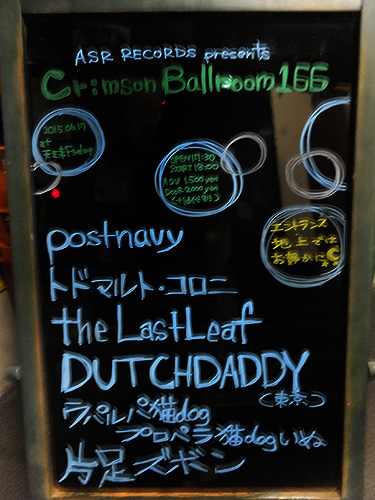 ASR RECORDS presents
Crimson Ballroom 166
2015.06.17
at
天王寺Fireloop
OPEN 17:30
START 18:00
ADV 1,500 yen
DOOR 2,000 yen
(+1drink別)
エントランス
地上では
お静かに
postnavy
トドマルト・コロニー
the LastLeaf
DUTCHDADDY
(東京)
ラパルパ猫dog
プロペラ猫dogいぬ
片足ズボン